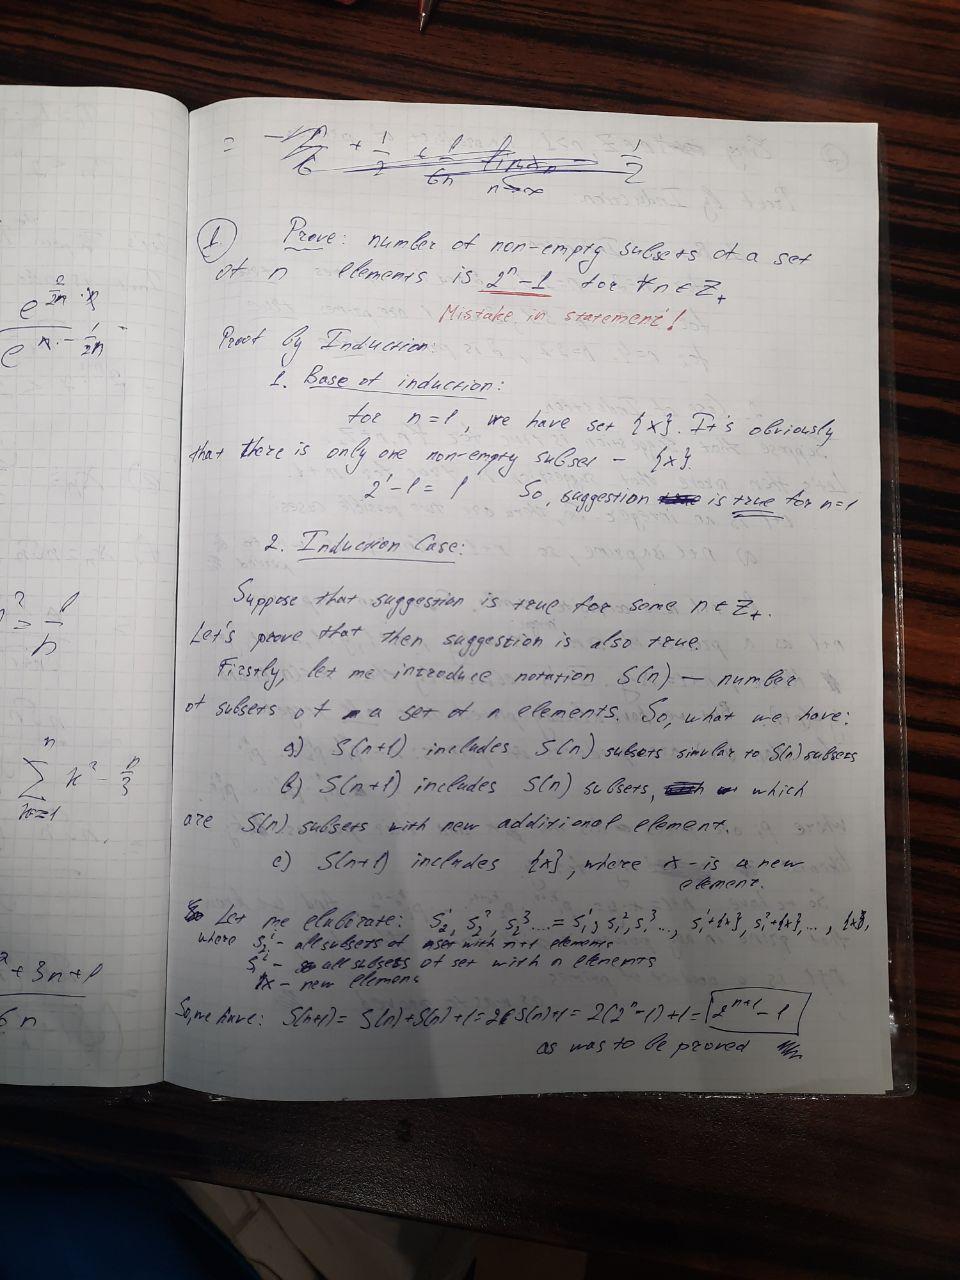 e^{n/2n · n}
e^{n · - 1/2n}
n² = 1/n
n
∑ k² - n/3
k=1
² + 3n + 1
6n
= + 1/2 + 1/6n 1/2
n→∞
1. Prove: number of non-empty subsets of a set
of n elements is 2ⁿ-1 for ∀n∈Z₊
Mistake in statement!
Proof by Induction:
1. Base of induction:
for n=1, we have set {x}. It's obviously
that there is only one non-empty subset - {x}.
2¹-1=1 So, suggestion is true for n=1
2. Induction Case:
Suppose that suggestion is true for some n∈Z₊.
Let's prove that then suggestion is also true.
Firstly, let me introduce notation S(n) — number
of subsets of a set of n elements. So, what we have:
a) S(n+1) includes S(n) subsets similar to S(n) subsets
b) S(n+1) includes S(n) subsets, which
are S(n) subsets with new additional element.
c) S(n+1) includes {x}, where x - is a new
element.
Let me elaborate: S₂¹, S₂², S₂³... = S₁¹, S₁², S₁³..., S₁¹+{x}, S₁²+{x},..., {x},
where S₂ⁱ - all subsets of set with n+1 elements
Sⁱ - all subsets of set with n elements
x - new element
So, we have: S(n+1) = S(n)+S(n)+1=2·S(n)+1= 2(2ⁿ-1)+1= 2ⁿ⁺¹-1
as was to be proved